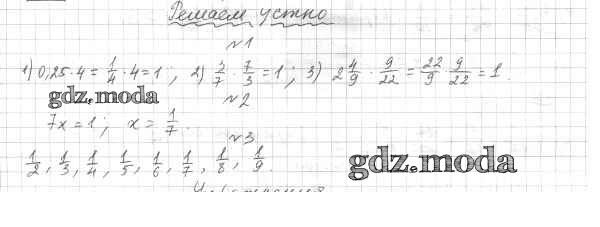 Решаем устно
№1
1) 0,25·4 = 1/4 · 4 = 1; 2) 3/7 · 7/3 = 1; 3) 2 4/9 · 9/22 = 22/9 · 9/22 = 1.
gdz.moda
№2
7x = 1; x = 1/7.
№3
1/2, 1/3, 1/4, 1/5, 1/6, 1/7, 1/8, 1/9.
gdz.moda